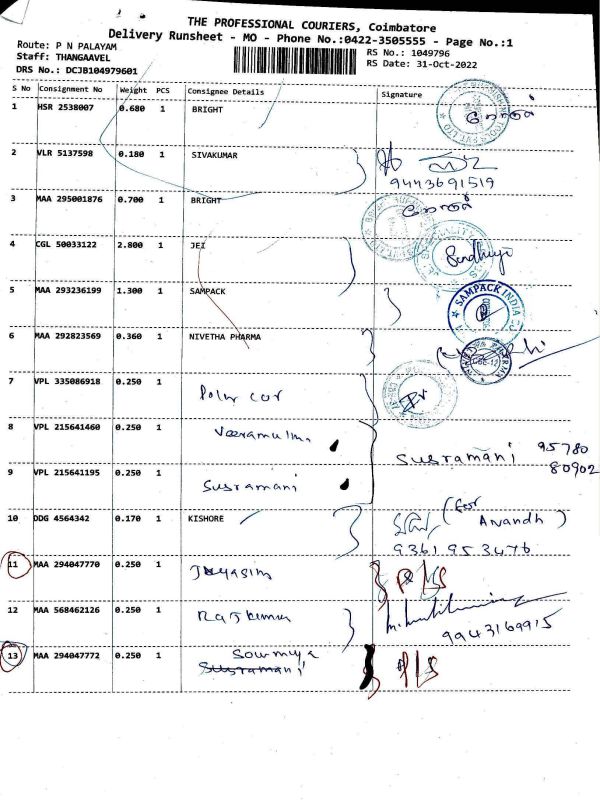 THE PROFESSIONAL COURIERS, Coimbatore
Delivery Runsheet - MO - Phone No.:0422-3505555 - Page No.:1
Route: P N PALAYAM
RS No.: 1049796
Staff: THANGAAVEL
RS Date: 31-Oct-2022
DRS No.: DCJB104979601
S No Consignment No Weight PCS Consignee Details Signature
1 HSR 2538007 0.680 1 BRIGHT
2 VLR 5137598 0.180 1 SIVAKUMAR
9443691519
3 MAA 295001876 0.700 1 BRIGHT
4 CGL 50033122 2.800 1 JEI
5 MAA 293236199 1.300 1 SAMPACK
SAMPACK INDIA
6 MAA 292823569 0.360 1 NIVETHA PHARMA
7 VPL 335086918 0.250 1
8 VPL 215641460 0.250 1
Susramani 95780
80902
9 VPL 215641195 0.250 1 Susramani
10 DDG 4564342 0.170 1 KISHORE
(for Anandh)
9361953476
11 MAA 294047770 0.250 1
12 MAA 568462126 0.250 1 Rajkumar
9943169915
13 MAA 294047772 0.250 1 Sowmiya
Susramani